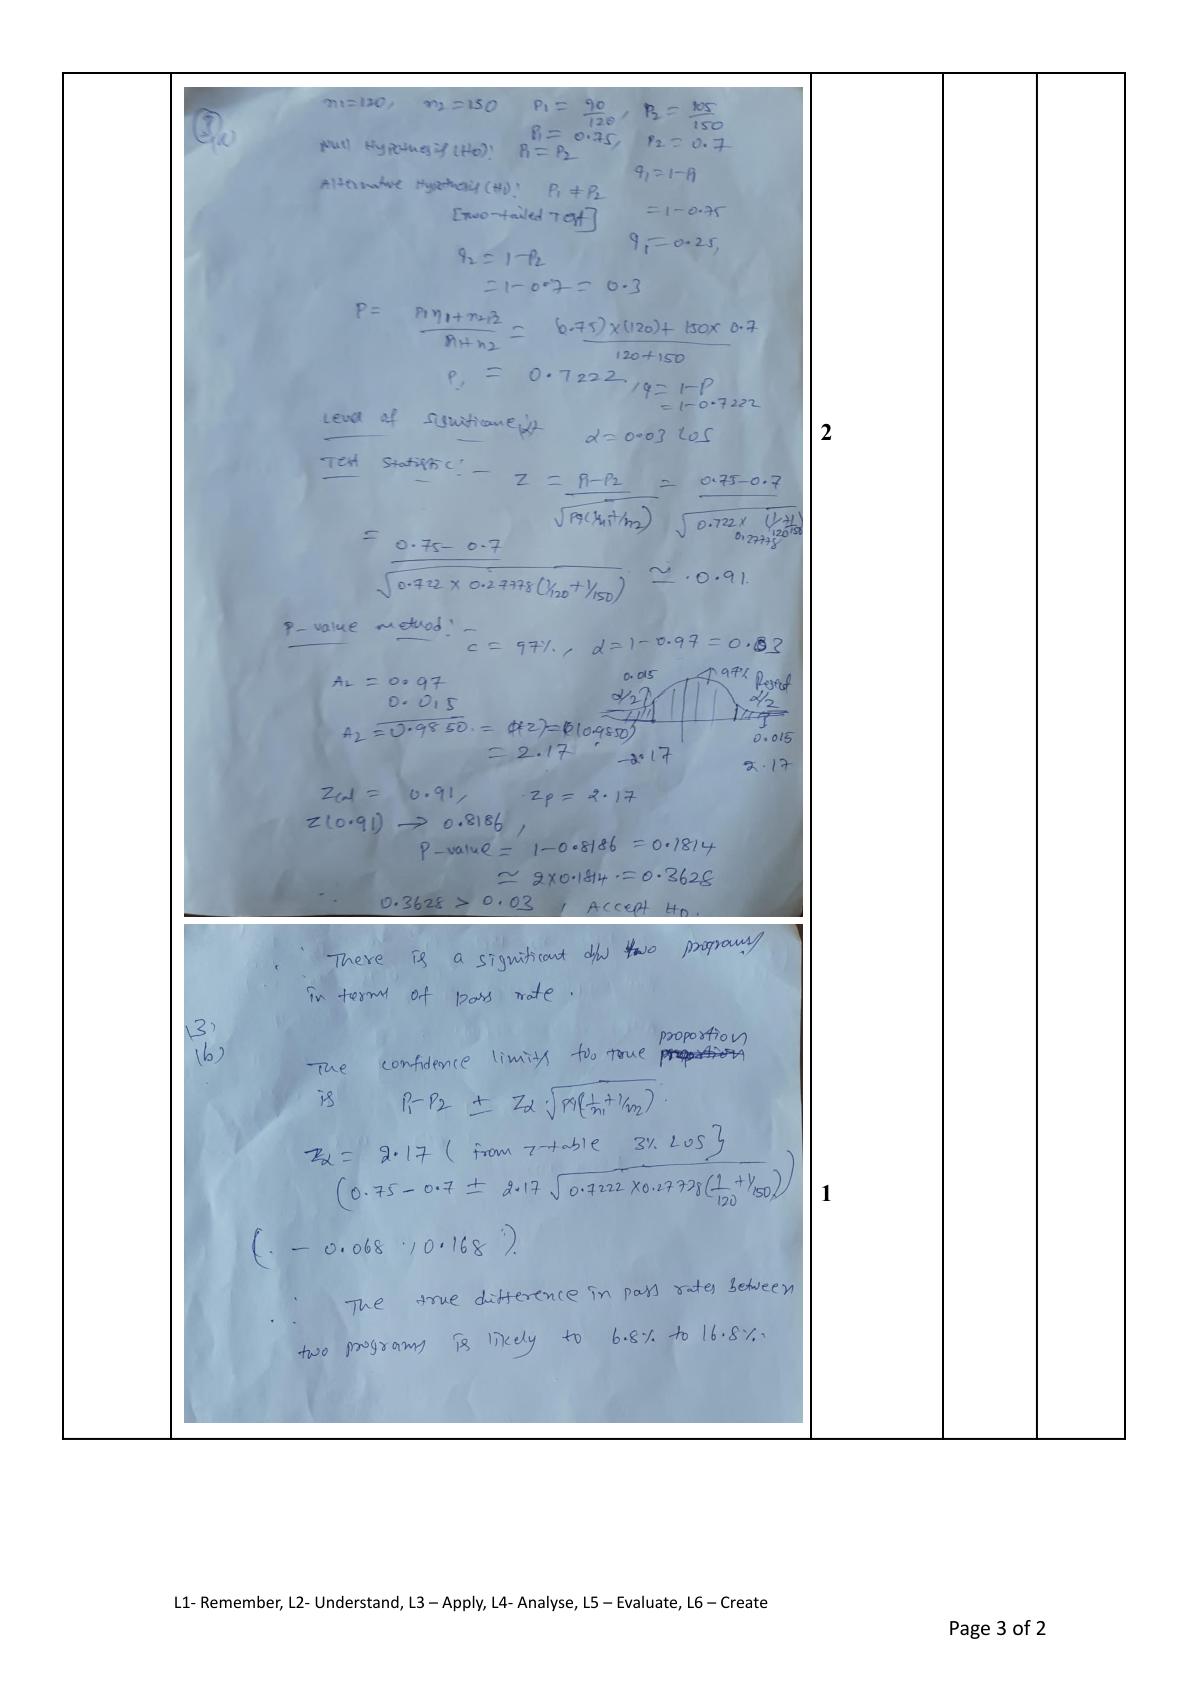 3
(a)
n1=120, n2=150 P1 = 90/120, P2 = 105/150
P1 = 0.75, P2 = 0.7
Null Hypothesis(H0): P1 = P2
q1 = 1-P1
Alternative Hypothesis(H1): P1 ≠ P2
[Two-tailed Test] = 1-0.75
q1 = 0.25,
q2 = 1-P2
= 1-0.7 = 0.3
P = P1n1+n2P2/n1+n2 = (0.75)x(120)+150x0.7/120+150
P, = 0.7222, q = 1-P
= 1-0.7222
Level of Significance: α = 0.03 LOS
Test Statistic:- Z = P1-P2/√pq(1/n1+1/n2) = 0.75-0.7/√0.722 x 0.27778 (1/120+1/150)
= 0.75-0.7/√0.722 x 0.27778(1/120+1/150) ≃ 0.91.
P-value method:- c = 97%, α=1-0.97 = 0.03
0.015 97% Reject
A2 = 0.97 α/2 α/2
0.015
A2 = 0.9850 = (0.9850) 0.015
= 2.17 -2.17 2.17
Zcal = 0.91, Zp = 2.17
Z(0.91) → 0.8186,
P-value = 1-0.8186 = 0.1814
≃ 2x0.1814 = 0.3628
∴ 0.3628 > 0.03, Accept H0.
2
∴ There is a significant d/w two programs
in terms of pass rate.
13)
(b)
The confidence limits too true proportion
is P1-P2 ± Zα √pq(1/n1+1/n2).
Zα = 2.17 ( from z-table 3% LOS}
(0.75-0.7 ± 2.17 √0.7222 x 0.27778(1/120+1/150))
1
(- 0.068, 0.168).
∴ The true difference in pass rates between
two programs is likely to 6.8% to 16.8%.
L1- Remember, L2- Understand, L3 – Apply, L4- Analyse, L5 – Evaluate, L6 – Create
Page 3 of 2